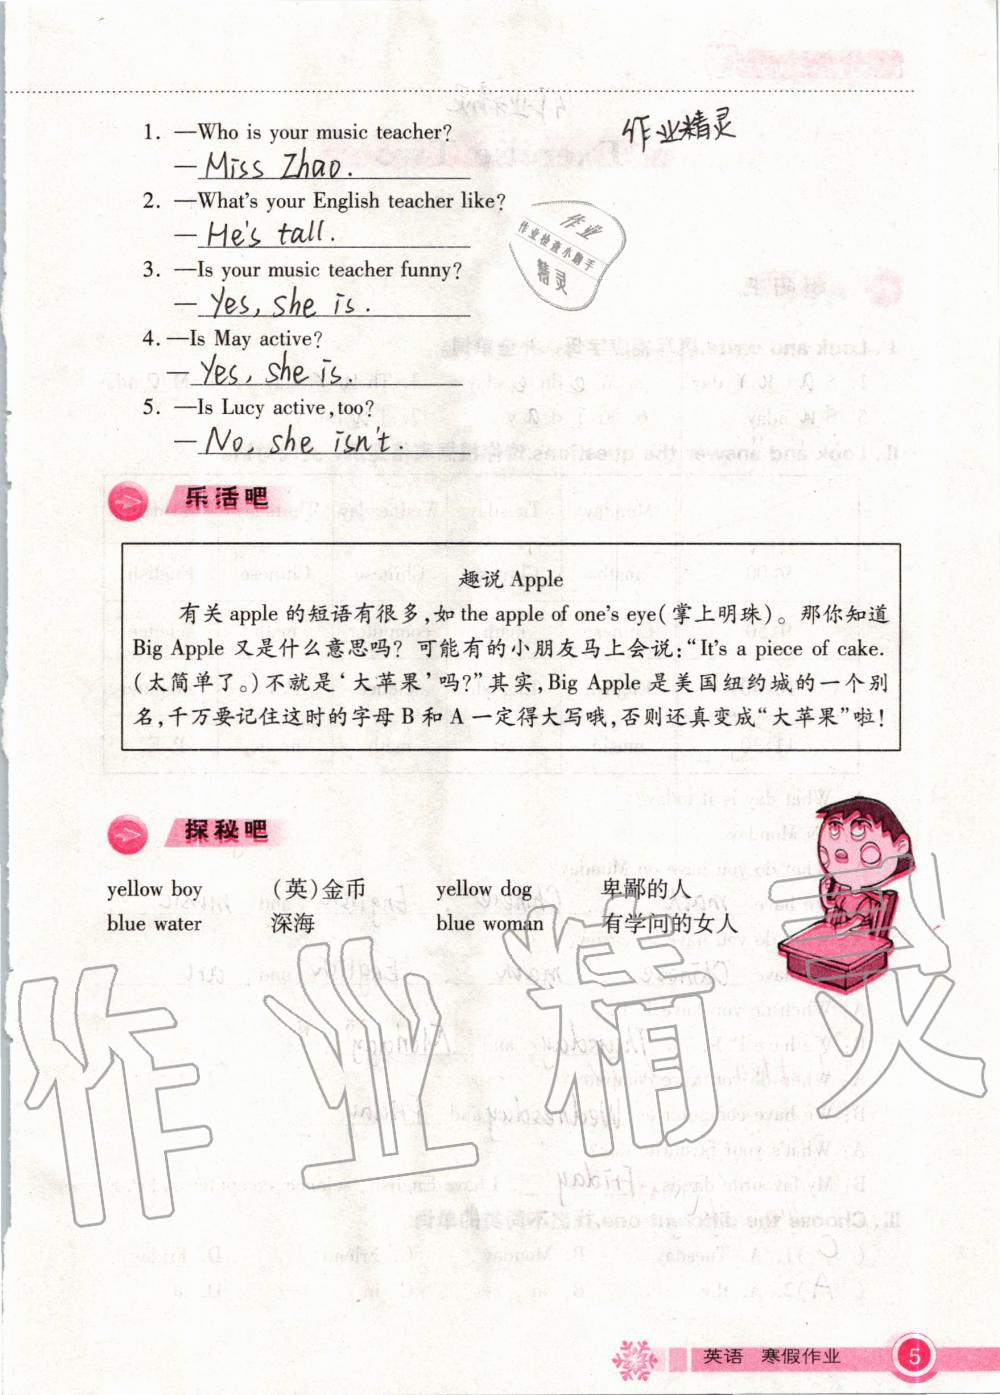 作业精灵
1. —Who is your music teacher?
— Miss Zhao.
2. —What's your English teacher like?
— He's tall.
3. —Is your music teacher funny?
— Yes, she is.
4. —Is May active?
— Yes, she is.
5. —Is Lucy active, too?
— No, she isn't.
作业
作业检查小助手
精灵
乐活吧
趣说 Apple
有关 apple 的短语有很多,如 the apple of one's eye(掌上明珠)。那你知道
Big Apple 又是什么意思吗？可能有的小朋友马上会说:“It's a piece of cake.
(太简单了。)不就是‘大苹果’吗?”其实,Big Apple 是美国纽约城的一个别
名,千万要记住这时的字母 B 和 A 一定得大写哦,否则还真变成“大苹果”啦!
探秘吧
yellow boy (英)金币 yellow dog 卑鄙的人
blue water 深海 blue woman 有学问的女人
作业精灵
英语 寒假作业 5